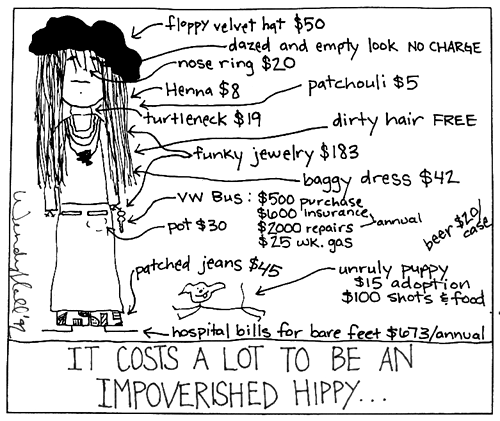 floppy velvet hat $50
dazed and empty look NO CHARGE
nose ring $20
Henna $8
patchouli $5
turtleneck $19
dirty hair FREE
funky jewelry $183
baggy dress $42
VW Bus: $500 purchase
$600 insurance
$2000 repairs
annual
$25 wk. gas
beer $20/
case
pot $30
patched jeans $45
unruly puppy
$15 adoption
$100 shots & food
hospital bills for bare feet $673/annual
IT COSTS A LOT TO BE AN
IMPOVERISHED HIPPY...